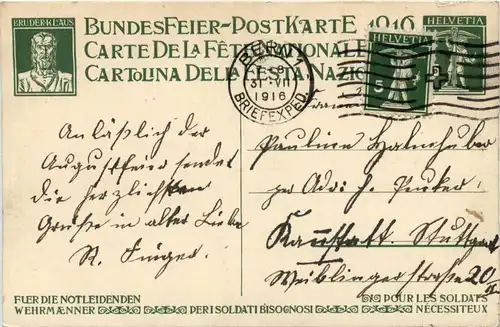 BRUDER·KLAUS
BUNDESFEIER-POSTKARTE 1916
CARTE DE LA FÊTE NATIONALE
CARTOLINA DELLA FESTA NAZIO
HELVETIA
HELVETIA
5
BERN 1
31. VII
1916
BRIEFEXPED.
Anläßlich der
Augustfeier sendet
die herzlichsten
Grüße in alter Liebe
R. Finger.
Pauline Halmhuber
per Adr: J.
Kannstatt Stuttgart
Waiblingerstraße 20/II
FUER DIE NOTLEIDENDEN
WEHRMÆNNER
PER I SOLDATI BISOGNOSI
POUR LES SOLDATS
NÉCESSITEUX